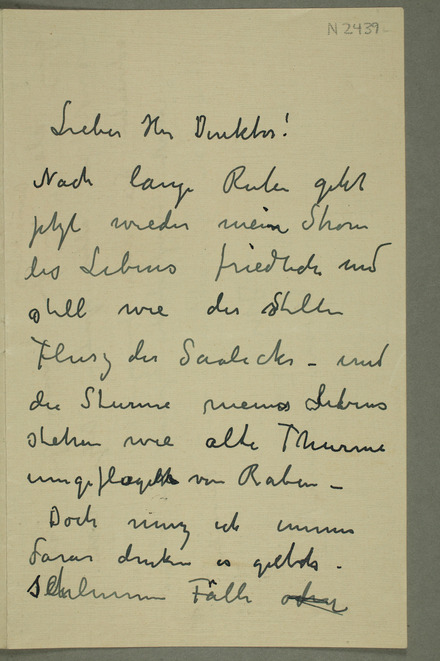 N 2439
Lieber Herr Direktor!
Nach lange Ruhe geht
jetzt wieder mein Strom
des Lebens friedlich und
still wie der stille
Flusz der Saaleck – und
die Sturme meines Lebens
stehen wie alte Thurme
umgeflogen von Raben –
Doch musz ich immer
daran denken es giebt
schlimme Fälle